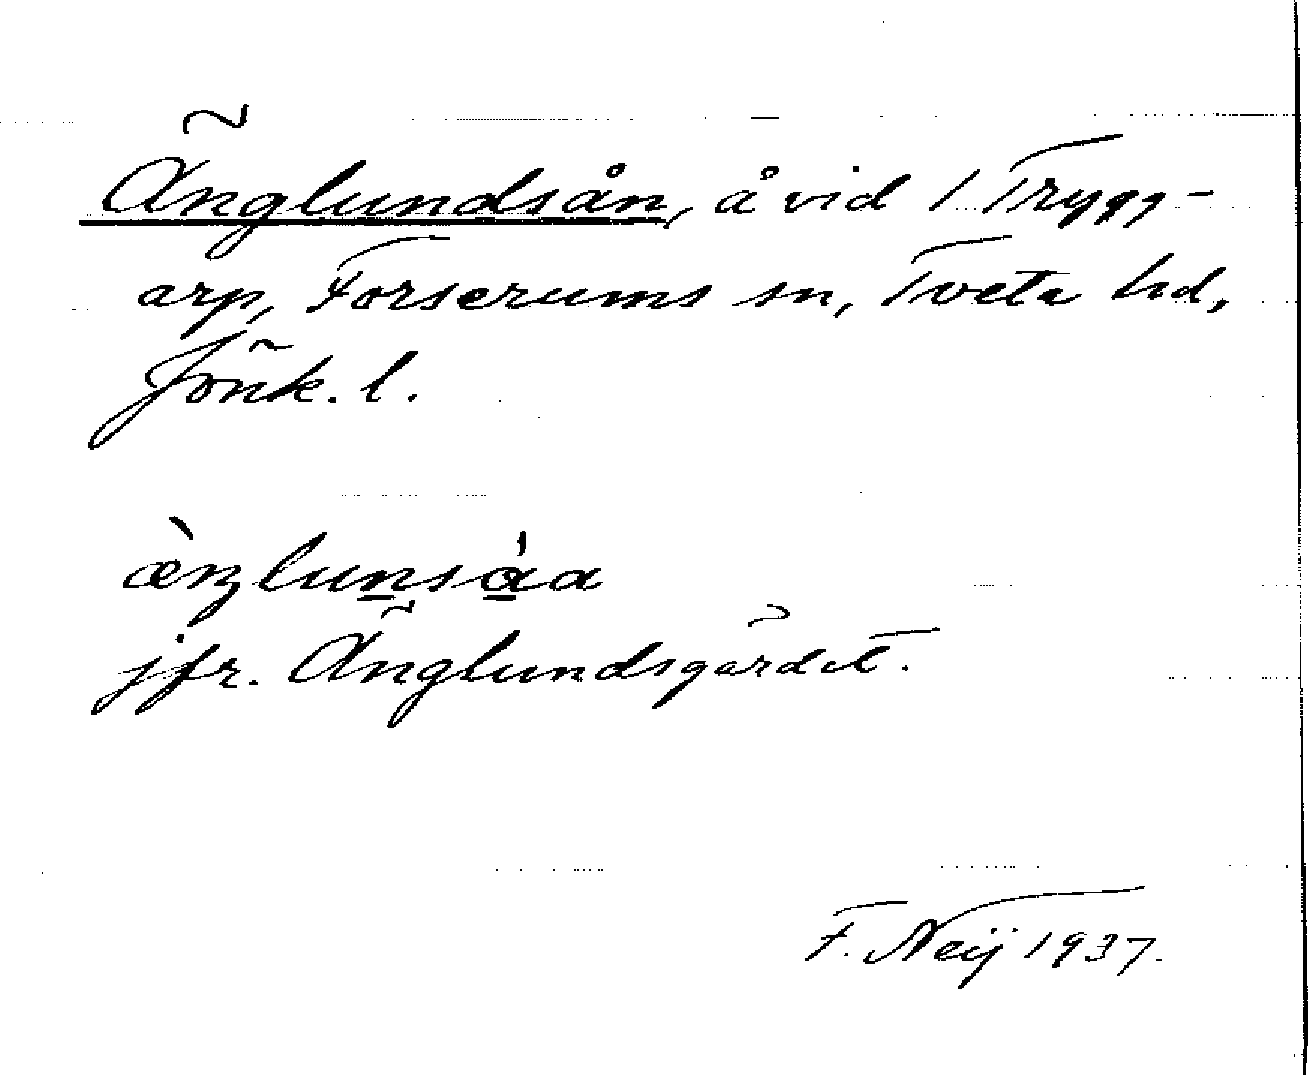 Änglundsån, å vid 1 Trygg-
arp, Forserums sn, Tveta hd,
Jönk. l.
æ̀ŋlunsa̍a
jfr. Änglundsgärdet.
F. Neij 1937.